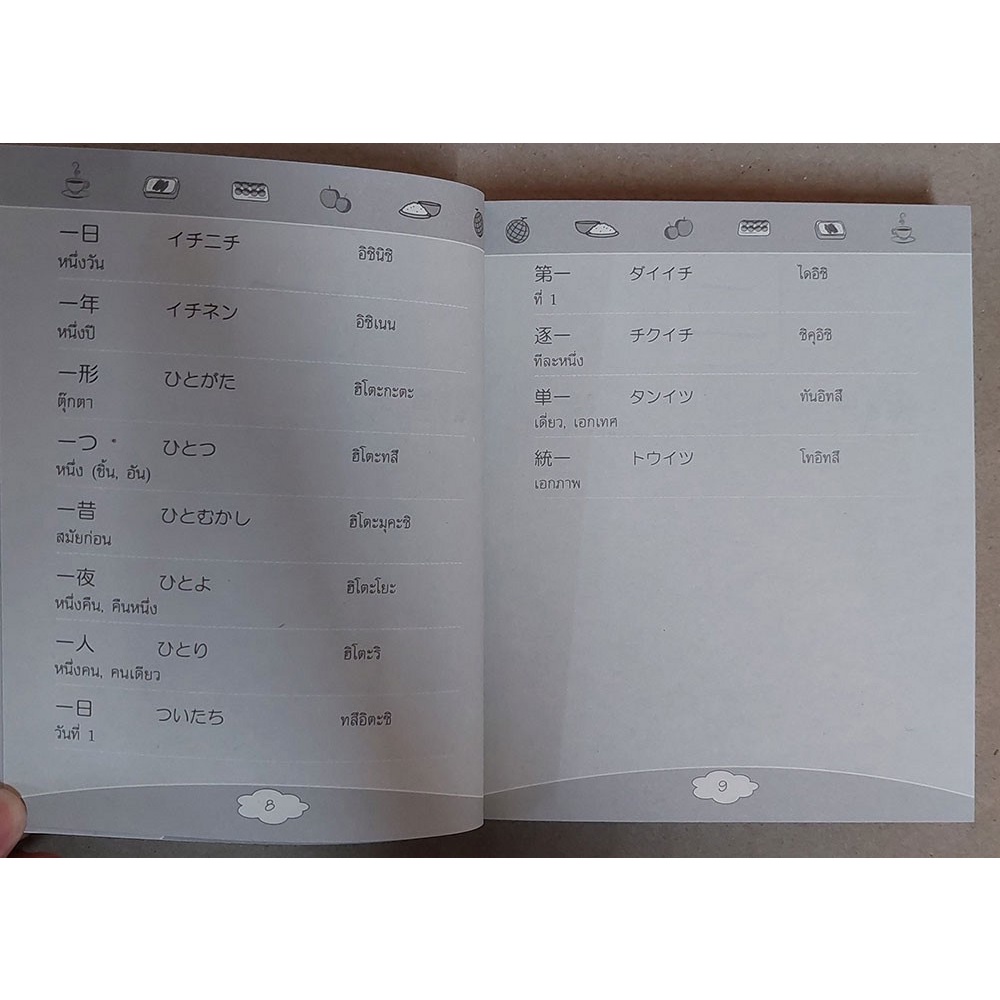 一日 イチニチ อิชินิชิ
หนึ่งวัน
一年 イチネン อิชิเนน
หนึ่งปี
一形 ひとがた ฮิโตะกะตะ
ตุ๊กตา
一つ ひとつ ฮิโตะทสึ
หนึ่ง (ชิ้น, อัน)
一昔 ひとむかし ฮิโตะมุคะชิ
สมัยก่อน
一夜 ひとよ ฮิโตะโยะ
หนึ่งคืน, คืนหนึ่ง
一人 ひとり ฮิโตะริ
หนึ่งคน, คนเดียว
一日 ついたち ทสึอิตะชิ
วันที่ 1
8
第一 ダイイチ ไดอิชิ
ที่ 1
逐一 チクイチ ชิคุอิชิ
ทีละหนึ่ง
単一 タンイツ ทันอิทสึ
เดี่ยว, เอกเทศ
統一 トウイツ โทอิทสึ
เอกภาพ
9